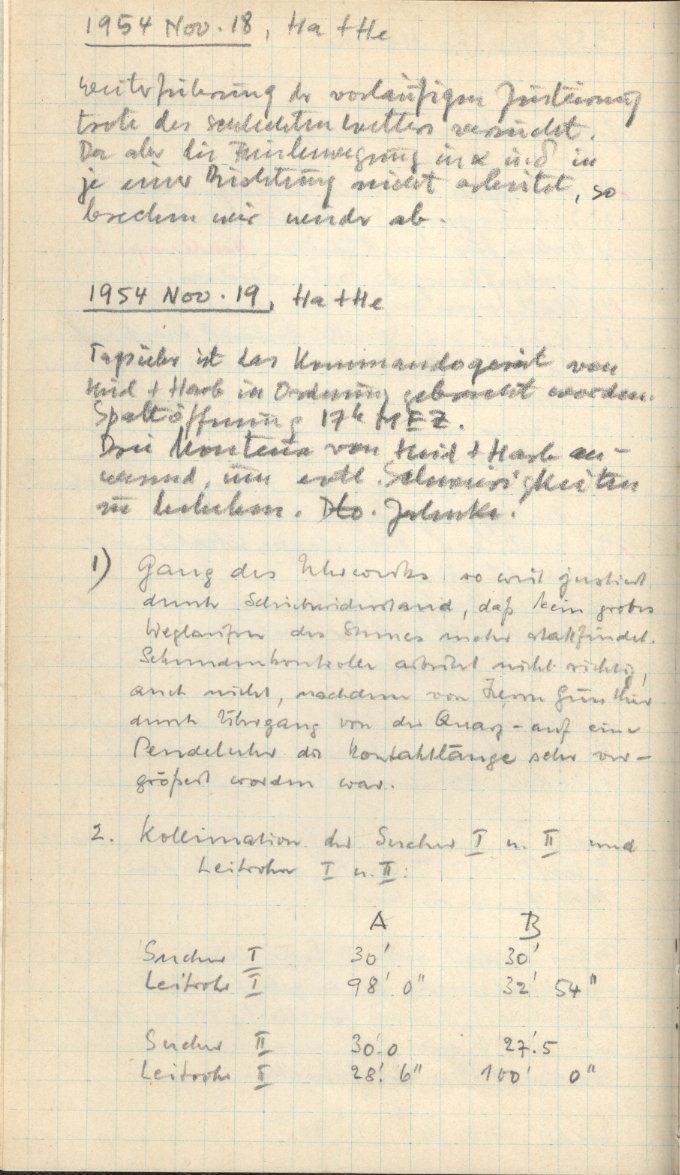 1954 Nov. 18, Ha + He
Weiterführung der vorläufigen Justierung
trotz des schlechten Wetters versucht.
Da aber die Feinbewegung in α u. δ in
je einer Richtung nicht arbeitet, so
brechen wir wieder ab.
1954 Nov. 19, Ha + He
Tagsüber ist das Kommandogerät von
Heid + Harb in Ordnung gebracht worden.
Spaltöffnung 17h MEZ.
Drei Monteure von Heid + Harb an-
wesend, um evtl. Schwierigkeiten
zu beheben. Dto. Jahnke.
1) Gang des Uhrwerks so weit justiert
durch Schiebewiderstand, daß kein grobes
Weglaufen des Sternes mehr stattfindet.
Sekundenkontrolle arbeitet nicht richtig,
auch nicht, nachdem von Herrn Günther
durch Übergang von der Quarz- auf eine
Pendeluhr die Kontaktlänge sehr ver-
größert worden war.
2. Kollimation der Sucher I u. II und
Leitrohre I u. II:
A B
Sucher I 30' 30'
Leitrohr I 98' 0" 32' 54"
Sucher II 30'.0 27'.5
Leitrohr II 28' 6" 100' 0"